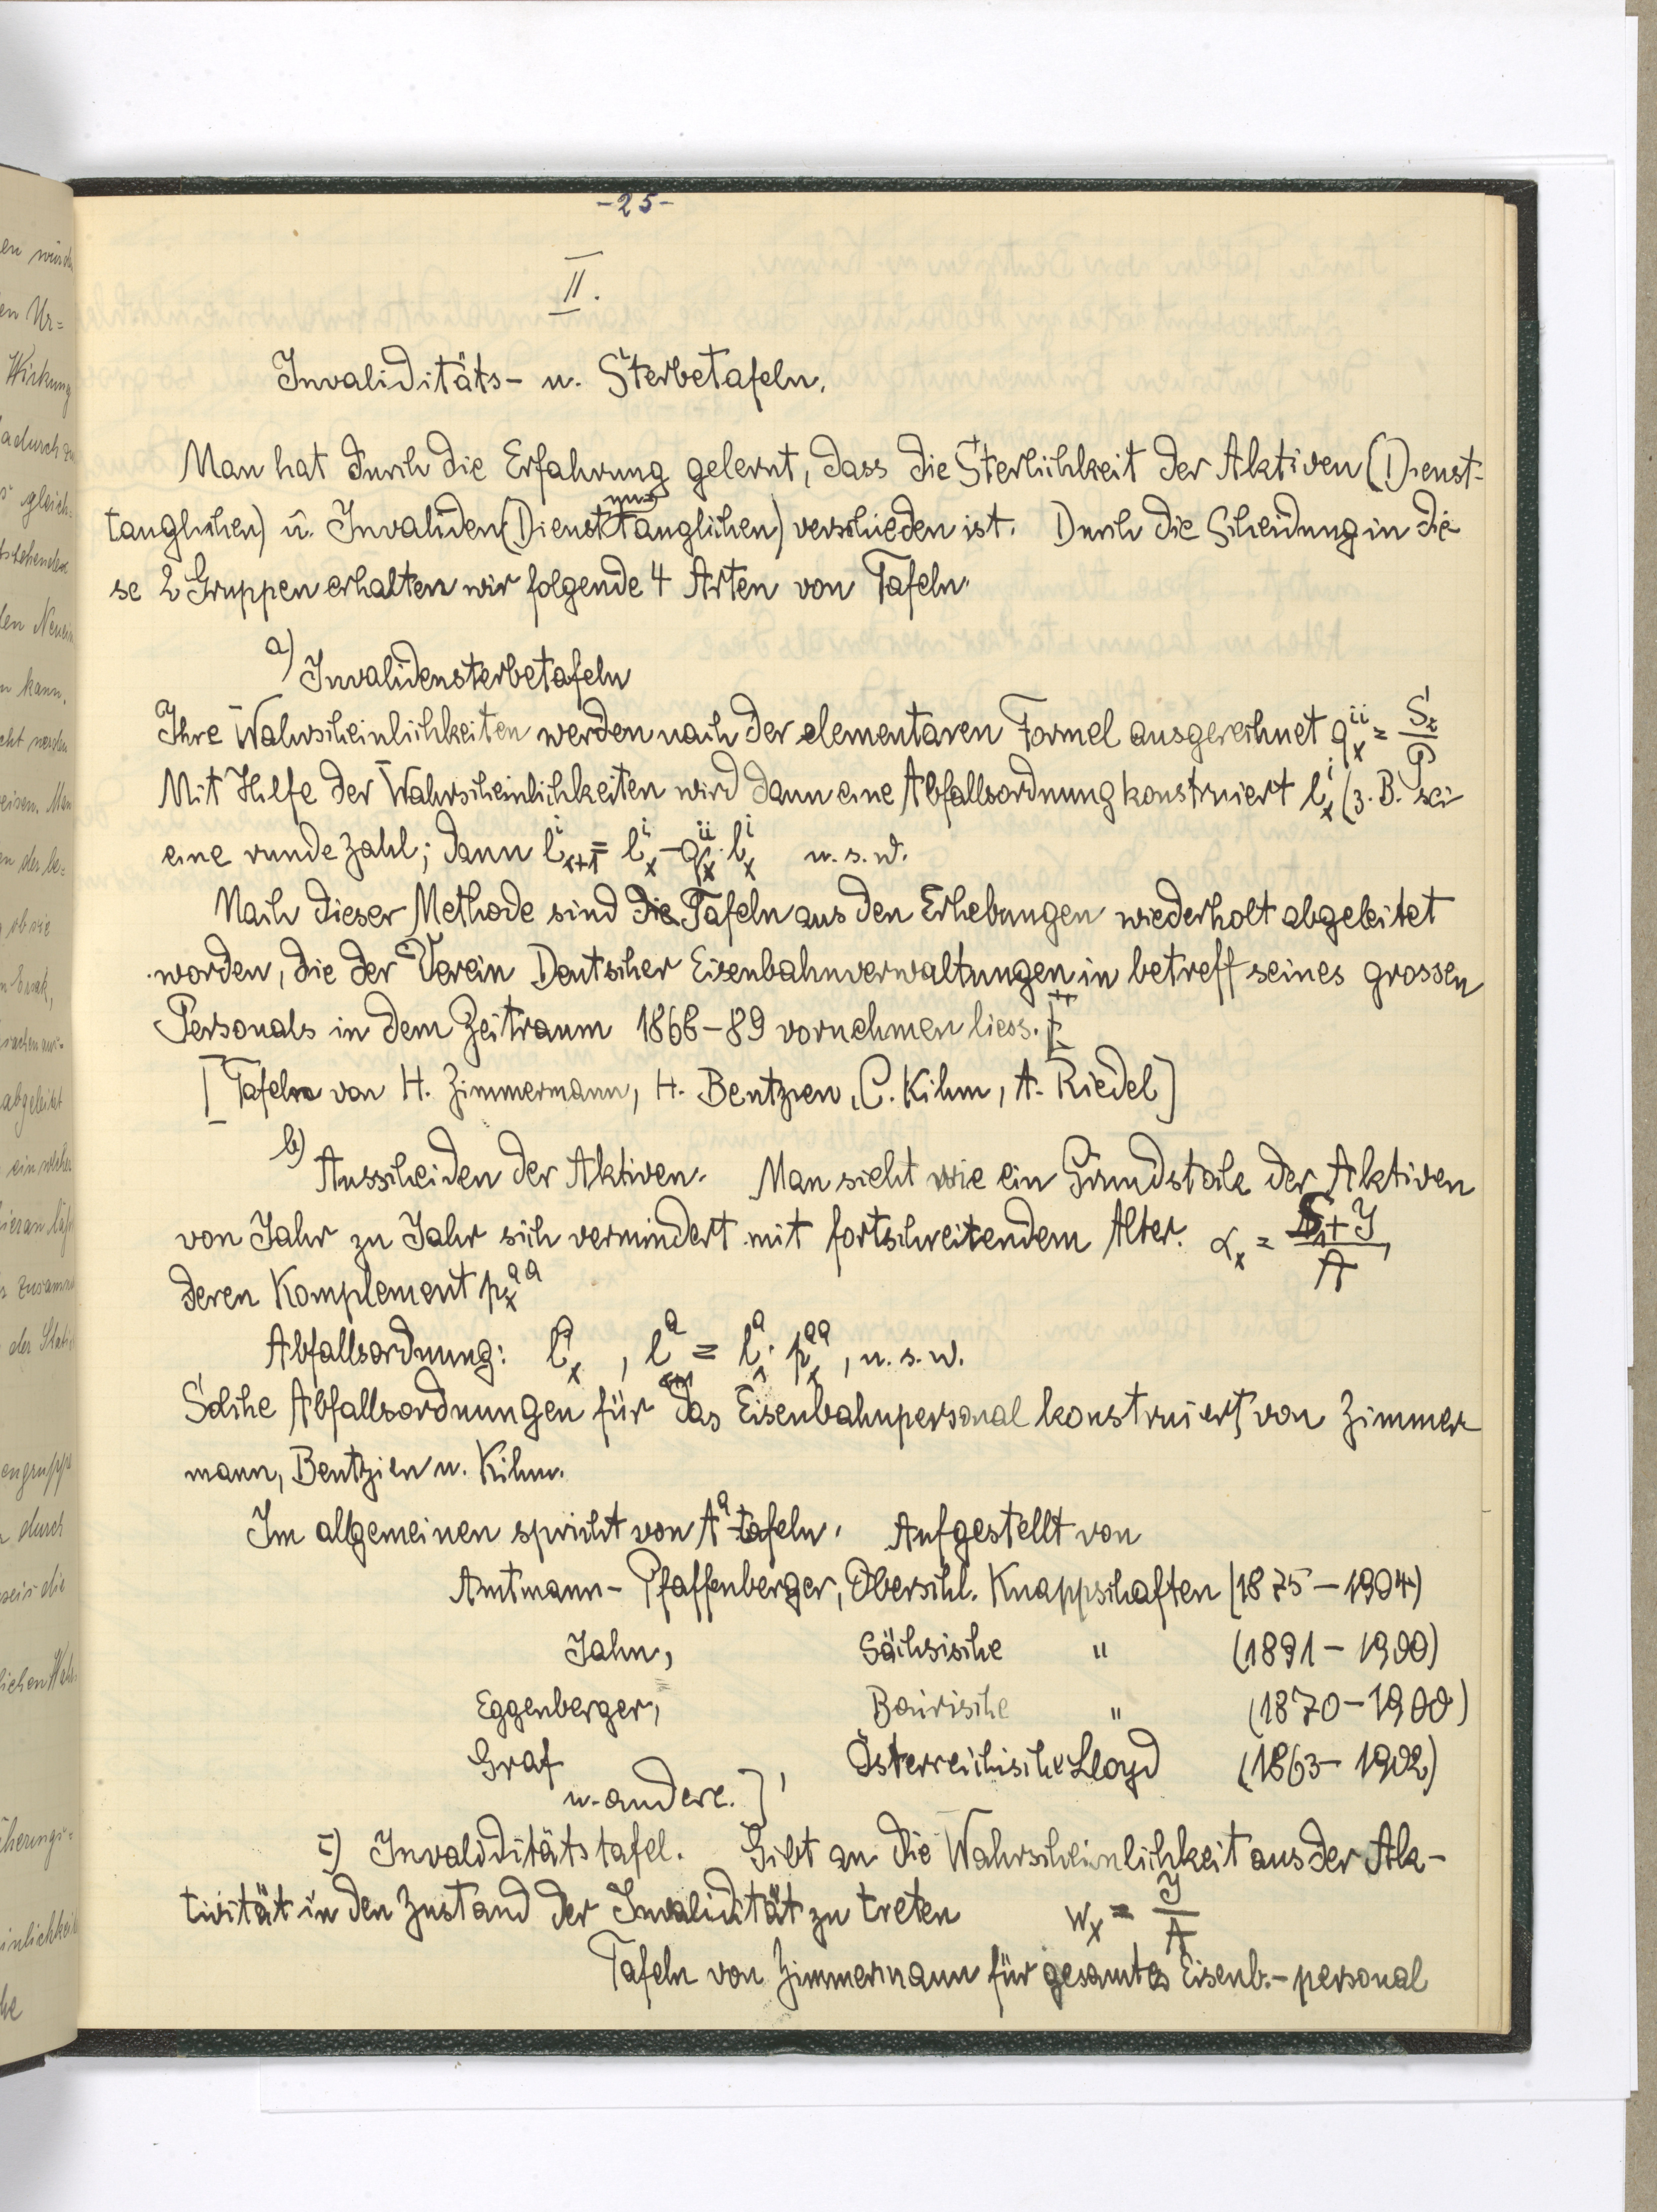 -25-
II.
Invaliditäts- u. Sterbetafeln.
Man hat durch die Erfahrung gelernt, dass die Sterblichkeit der Aktiven (Dienst-
tauglichen) u. Invaliden (Dienstuntauglichen) verschieden ist. Durch die Scheidung in die
se 2 Gruppen erhalten wir folgende 4 Arten von Tafeln.
a) Invalidensterbetafeln
Ihre Wahrscheinlichkeiten werden nach der elementaren Formel ausgerechnet q_x^{ii} = S_x/P
Mit Hilfe der Wahrscheinlichkeiten wird dann eine Abfallsordnung konstruiert l_x^i (z. B. sei
eine runde Zahl; dann l_{x+1}^i = l_x^i - q_x^{ii} · l_x^i u. s. w.
Nach dieser Methode sind die Tafeln aus den Erhebungen wiederholt abgeleitet
worden, die der Verein Deutscher Eisenbahnverwaltungen in betreff seines grossen
Personals in dem Zeitraum 1868-89 vornehmen liess.
[Tafeln von H. Zimmermann, H. Bentzien, C. Kihm, A. Riedel]
b) Ausscheiden der Aktiven. Man sieht wie ein Grundstock der Aktiven
von Jahr zu Jahr sich vermindert mit fortschreitendem Alter. α_x = S+J/A,
deren Komplement p_x^{aa}
Abfallsordnung: l_x^a, l_{x+1}^a = l_x^a · p_x^{aa}, u. s. w.
Solche Abfallsordnungen für das Eisenbahnpersonal konstruiert von Zimmer
mann, Bentzien u. Kihm.
Im allgemeinen spricht von A^a-tafeln. Aufgestellt von
Amtmann - Pfaffenberger, Oberschl. Knappschaften (1875-1904)
Jahn, Sächsische " (1891-1900)
Eggenberger, Bairische " (1870-1900)
Graf, Österreichische Lloyd (1863-1902)
u. andere.]
c) Invaliditätstafel. Gibt an die Wahrscheinlichkeit aus der Ak-
tivität in den Zustand der Invalidität zu treten w_x = J/A
Tafeln von Zimmermann für gesamtes Eisenb.-personal